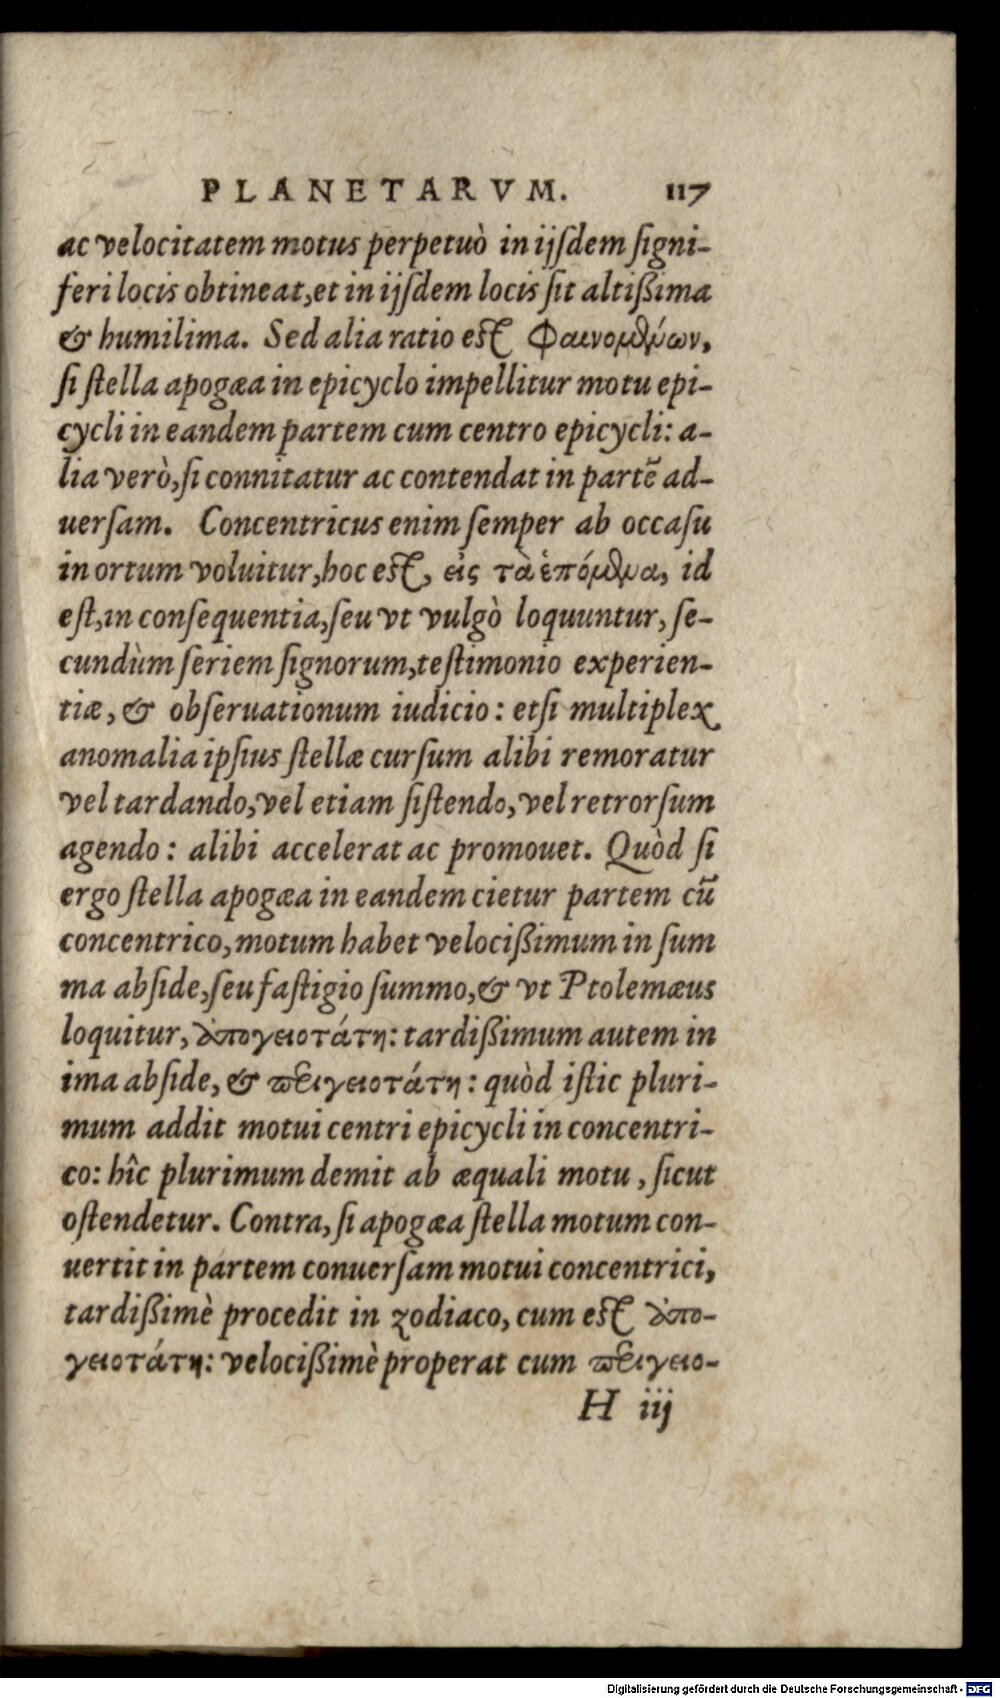 PLANETARVM. 117
ac velocitatem motus perpetuò in ijſdem ſigni-
feri locis obtineat, et in ijſdem locis ſit altißima
& humilima. Sed alia ratio eſt Φαινομένων,
ſi ſtella apogæa in epicyclo impellitur motu epi-
cycli in eandem partem cum centro epicycli: a-
lia verò, ſi connitatur ac contendat in partē ad-
uerſam. Concentricus enim ſemper ab occaſu
in ortum voluitur, hoc eſt, εἰς τὰ ἑπόμενα, id
eſt, in conſequentia, ſeu vt vulgò loquuntur, ſe-
cundùm ſeriem ſignorum, teſtimonio experien-
tiæ, & obſeruationum iudicio: etſi multiplex
anomalia ipſius ſtellæ curſum alibi remoratur
vel tardando, vel etiam ſiſtendo, vel retrorſum
agendo: alibi accelerat ac promouet. Quòd ſi
ergo ſtella apogæa in eandem cietur partem cū
concentrico, motum habet velocißimum in ſum
ma abſide, ſeu faſtigio ſummo, & vt Ptolemæus
loquitur, ἀπογειοτάτη: tardißimum autem in
ima abſide, & περιγειοτάτη: quòd iſtic pluri-
mum addit motui centri epicycli in concentri-
co: hîc plurimum demit ab æquali motu, ſicut
oſtendetur. Contra, ſi apogæa ſtella motum con-
uertit in partem conuerſam motui concentrici,
tardißimè procedit in zodiaco, cum eſt ἀπο-
γειοτάτη: velocißimè properat cum περιγειο-
H iij
Digitalisierung gefördert durch die Deutsche Forschungsgemeinschaft - DFG